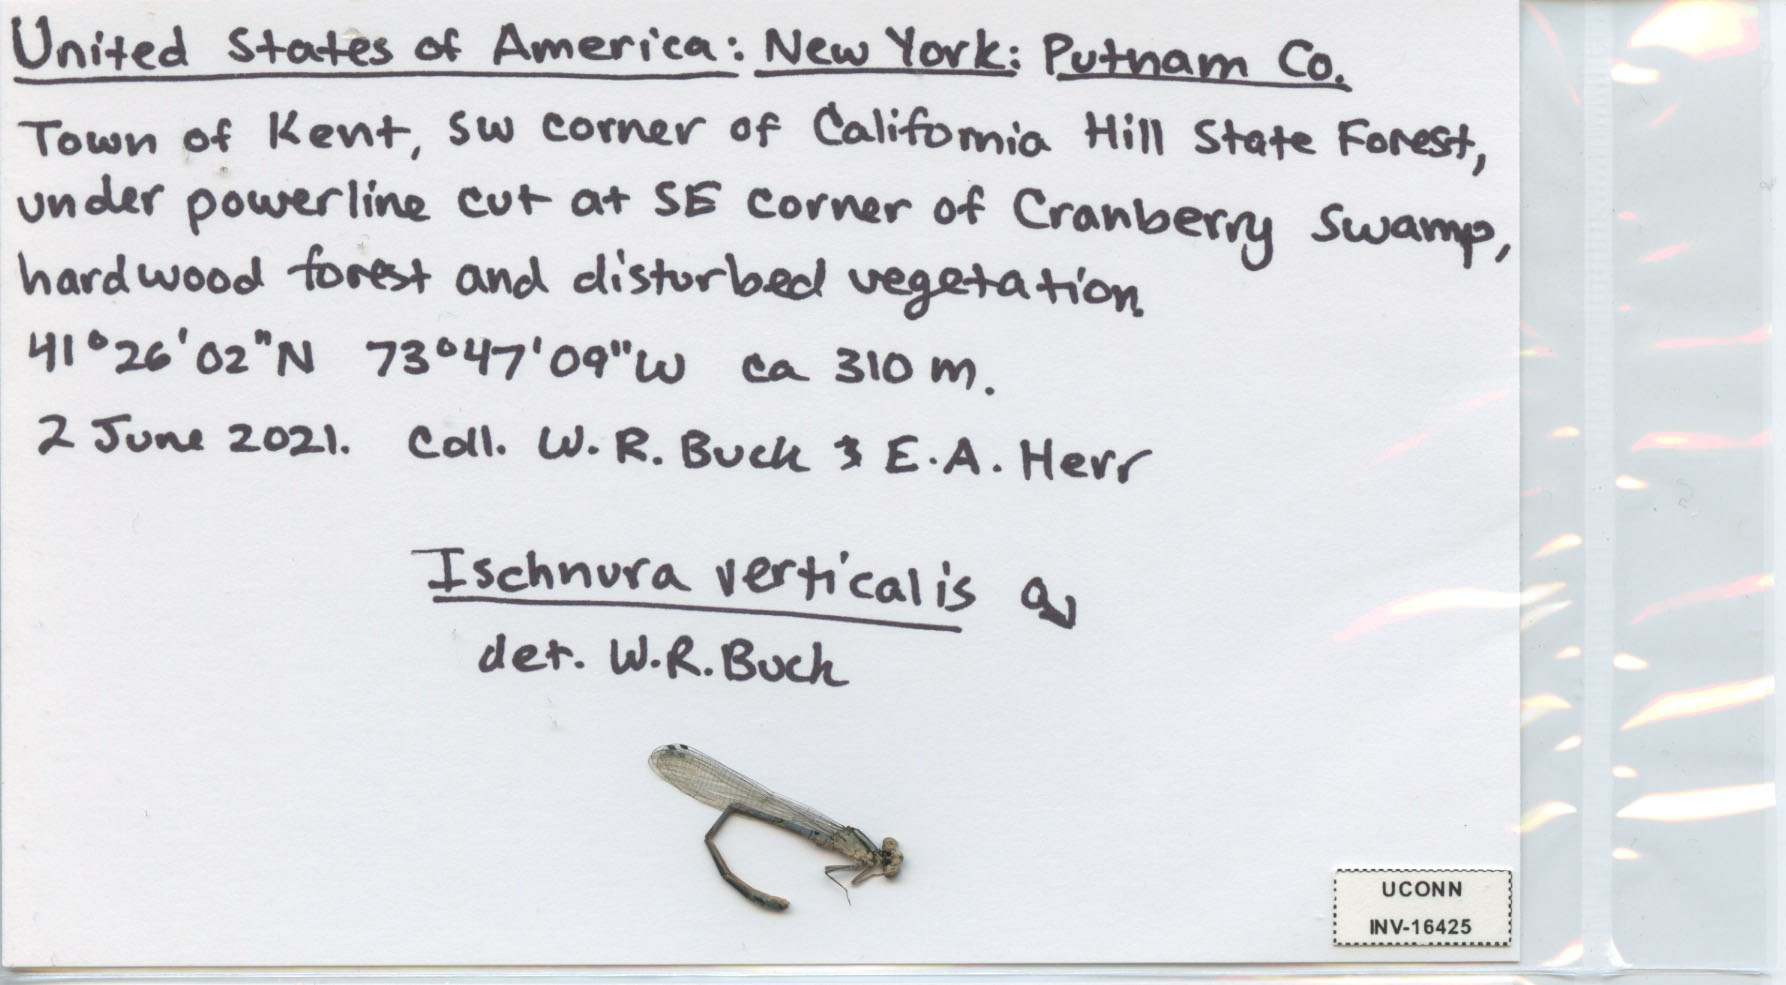 United States of America: New York: Putnam Co.
Town of Kent, SW corner of California Hill State Forest,
under powerline cut at SE corner of Cranberry Swamp,
hardwood forest and disturbed vegetation.
41°26'02"N 73°47'09"W ca 310 m.
2 June 2021. Coll. W. R. Buck & E. A. Herr
Ischnura verticalis
det. W.R. Buck
UCONN
INV-16425